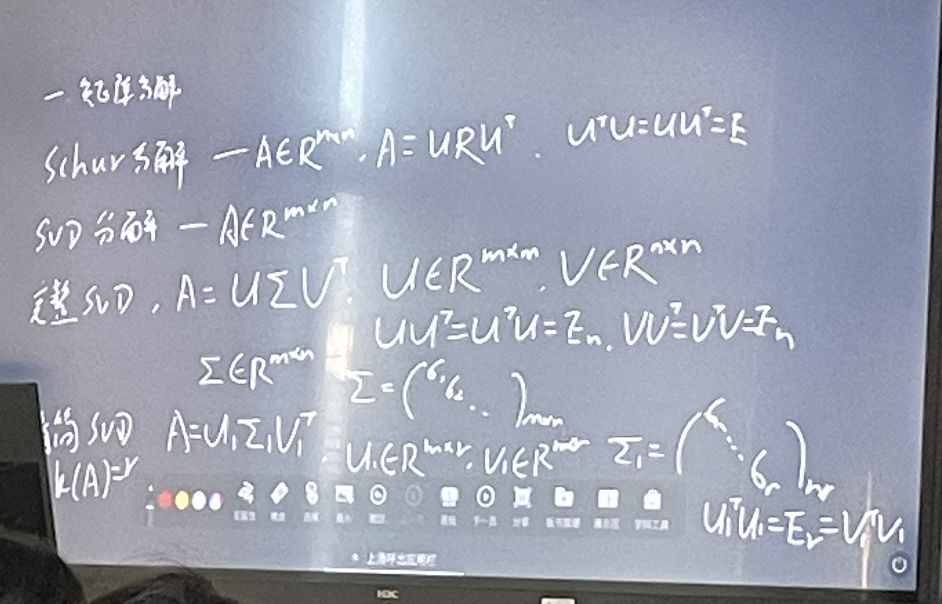 一 矩阵分解
Schur分解 — A∈R^{m×n}, A=URU^T. U^TU=UU^T=E
SVD分解 — A∈R^{m×n}
完整SVD, A=UΣV^T. U∈R^{m×m}, V∈R^{n×n}
UU^T=U^TU=E_n. VV^T=V^TV=E_n
Σ∈R^{m×n} Σ=(σ_1 σ_2 ..)_{m×n}
简SVD A=U_1Σ_1V_1^T, U_1∈R^{m×r}, V_1∈R^{n×r} Σ_1=(σ_1 ... σ_r)_{r×r}
k(A)=r
U_1^TU_1=E_r=V_1^TV_1
H3C